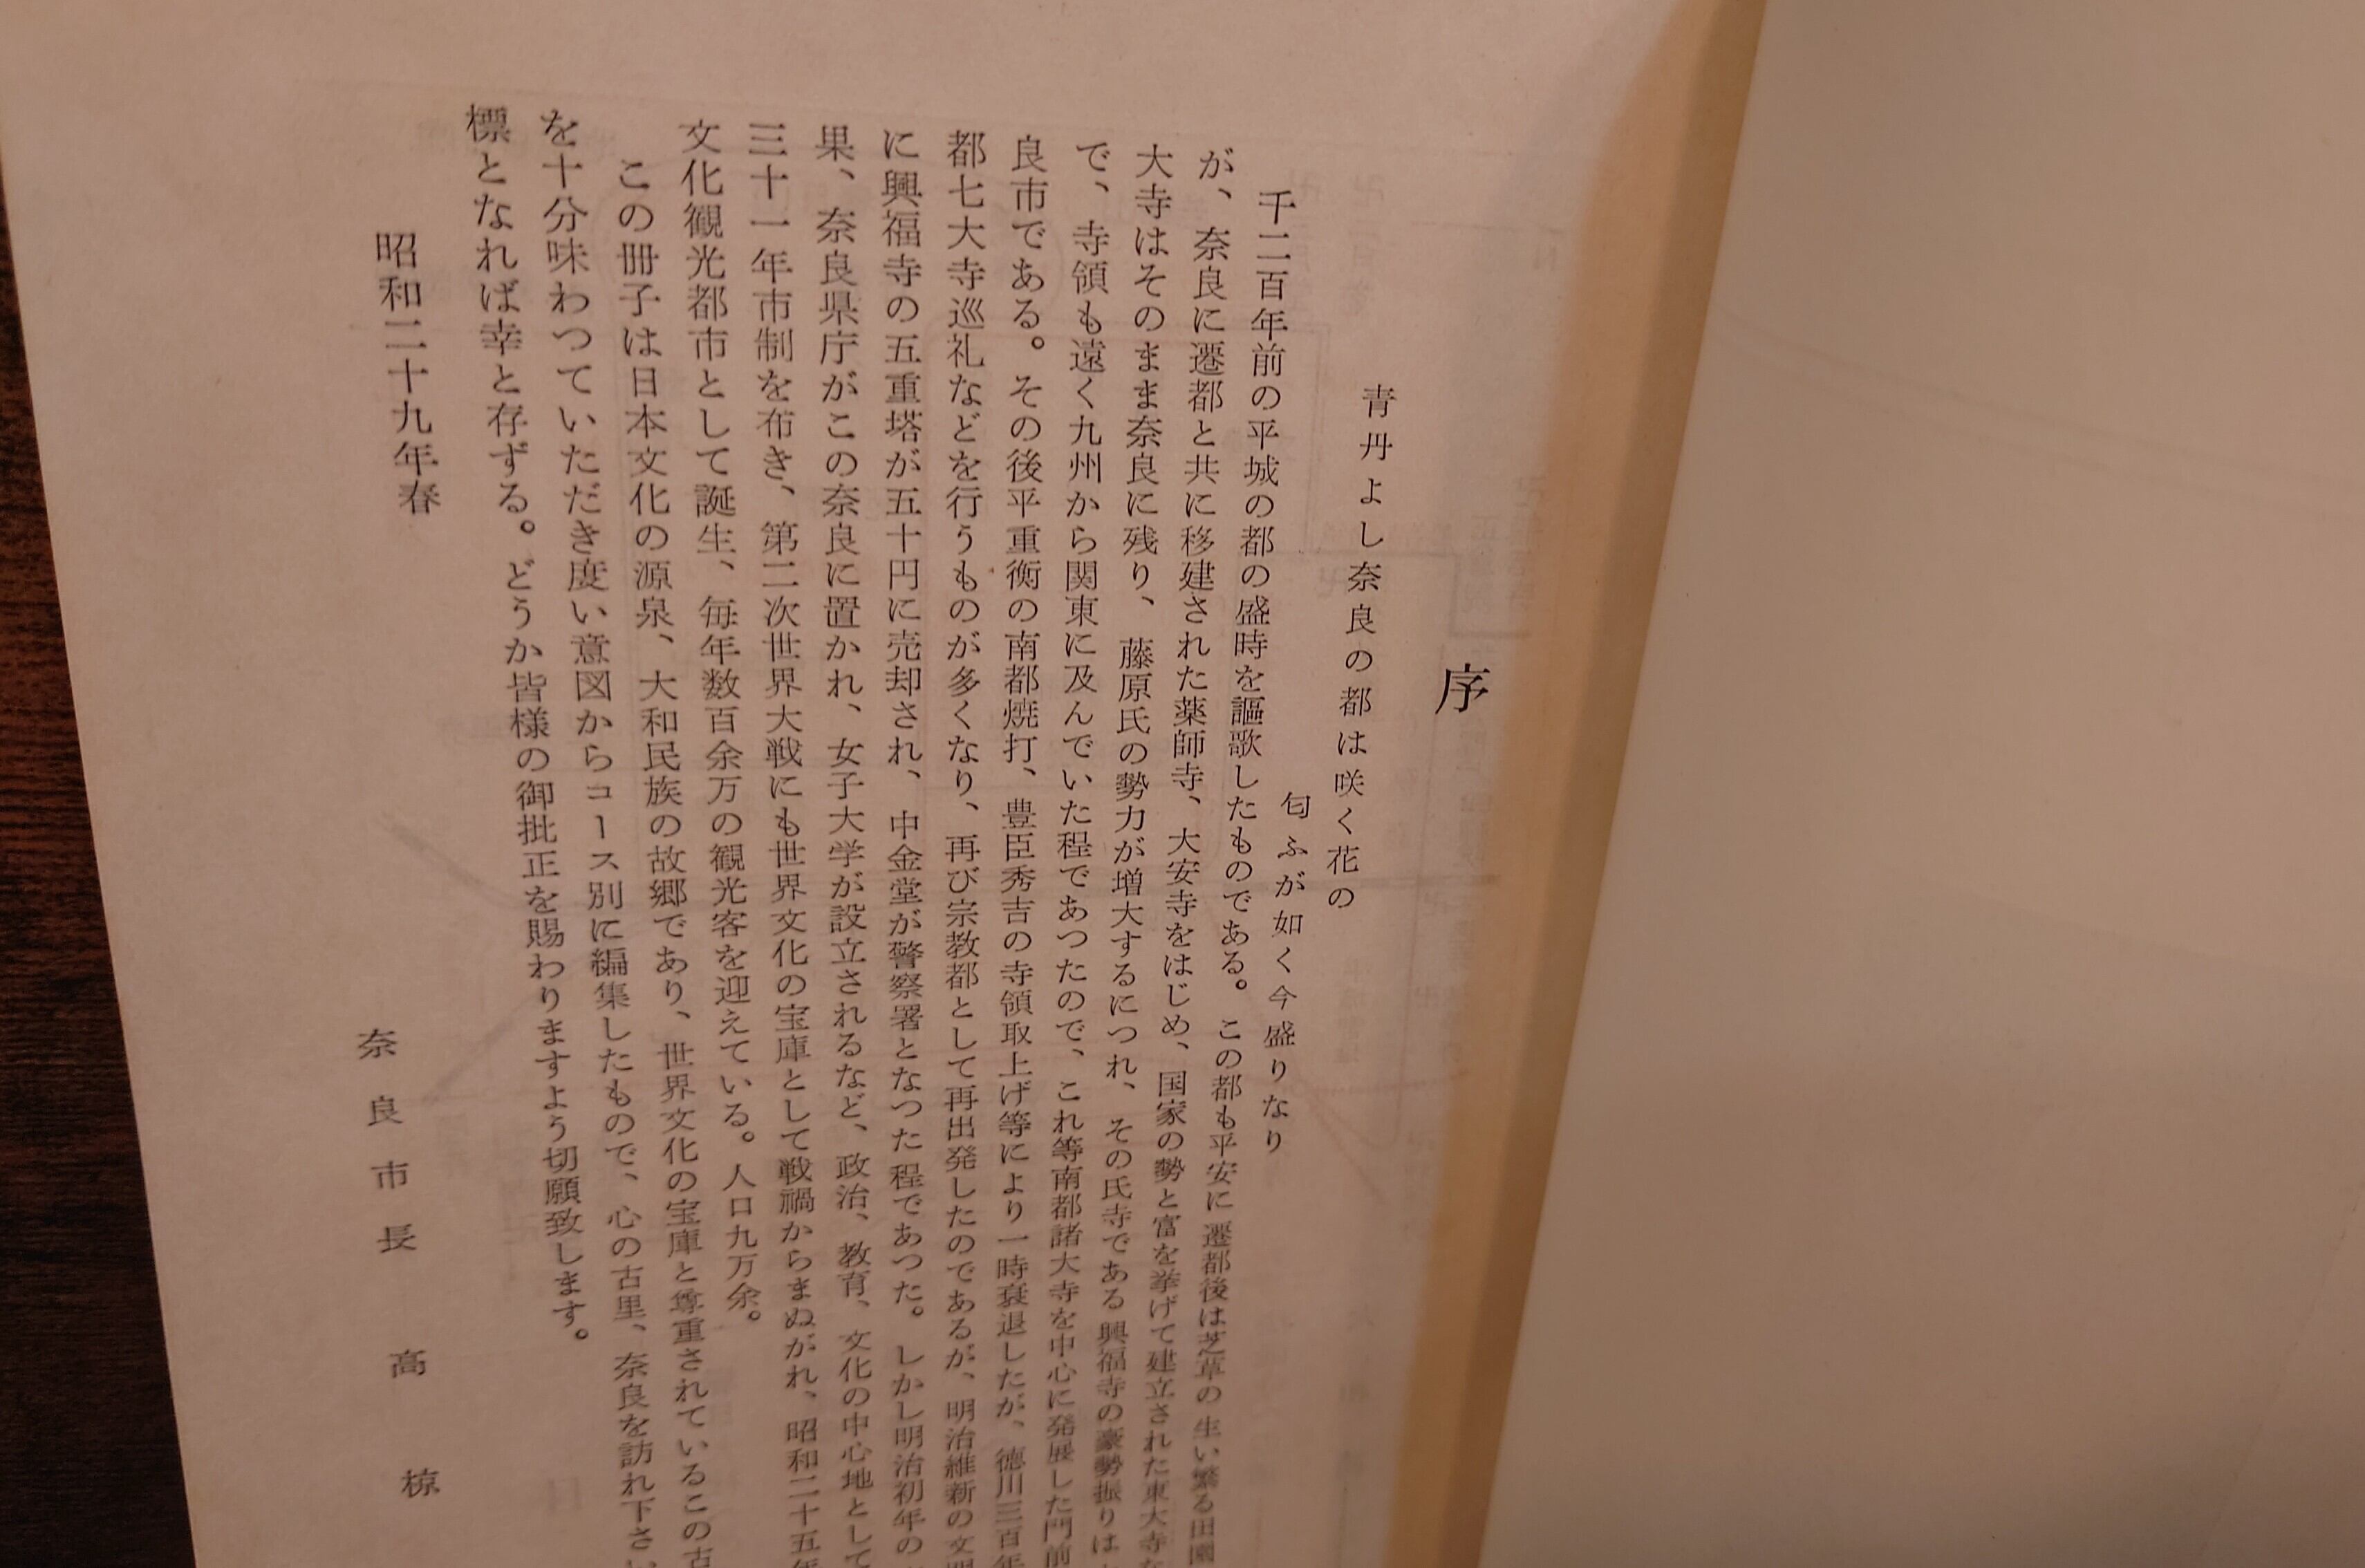 序
青丹よし奈良の都は咲く花の
匂ふが如く今盛りなり
千二百年前の平城の都の盛時を謳歌したものである。この都も平安に遷都後は芝草の生い繁る田園
が、奈良に遷都と共に移建された薬師寺、大安寺をはじめ、国家の勢と富を挙げて建立された東大寺
大寺はそのまま奈良に残り、藤原氏の勢力が増大するにつれ、その氏寺である興福寺の豪勢振りは
で、寺領も遠く九州から関東に及んでいた程であつたので、これ等南都諸大寺を中心に発展した門前
良市である。その後平重衡の南都焼打、豊臣秀吉の寺領取上げ等により一時衰退したが、徳川三百年
都七大寺巡礼などを行うものが多くなり、再び宗教都として再出発したのであるが、明治維新の文明
に興福寺の五重塔が五十円に売却され、中金堂が警察署となつた程であつた。しかし明治初年の
果、奈良県庁がこの奈良に置かれ、女子大学が設立されるなど、政治、教育、文化の中心地として
三十一年市制を布き、第二次世界大戦にも世界文化の宝庫として戦禍からまぬがれ、昭和二十五年
文化観光都市として誕生、毎年数百余万の観光客を迎えている。人口九万余。
この冊子は日本文化の源泉、大和民族の故郷であり、世界文化の宝庫と尊重されているこの古
を十分味わつていただき度い意図からコース別に編集したもので、心の古里、奈良を訪れ下さい
標となれば幸と存ずる。どうか皆様の御批正を賜わりますよう切願致します。
昭和二十九年春
奈良市長 高椋